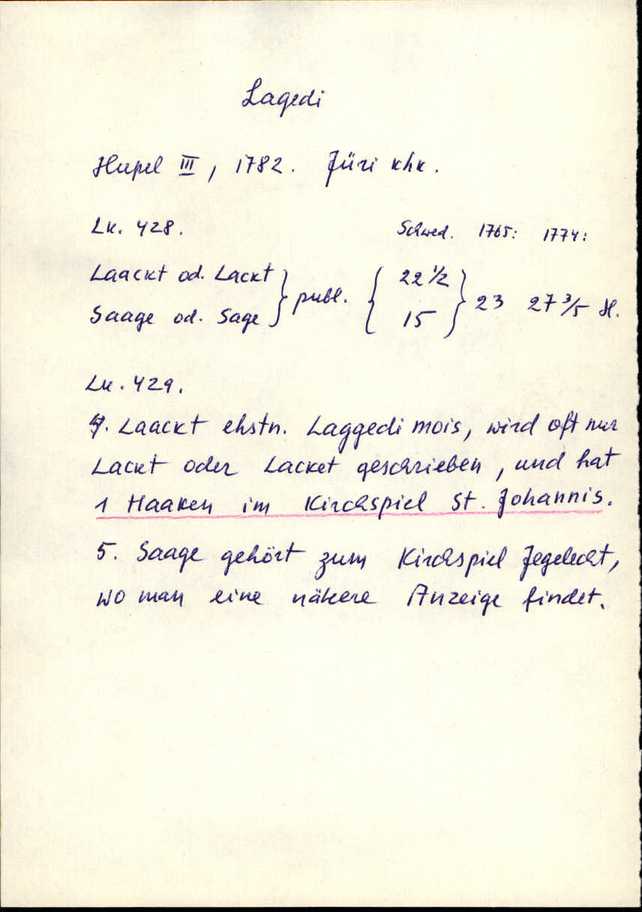 Lagedi
Hupel III, 1782. Jüri khk.
Lk. 428. Schwed. 1765: 1774:
Laackt od. Lackt } publ. { 22 1/2 } 23 27 3/5 H.
Saage od. Sage 15
Lk. 429.
4. Laackt ehstn. Laggedi mois, wird oft nur
Lackt oder Lacket geschrieben, und hat
1 Haaken im Kirchspiel St. Johannis.
5. Saage gehört zum Kirchspiel Jegelecht,
wo man eine nähere Anzeige findet.